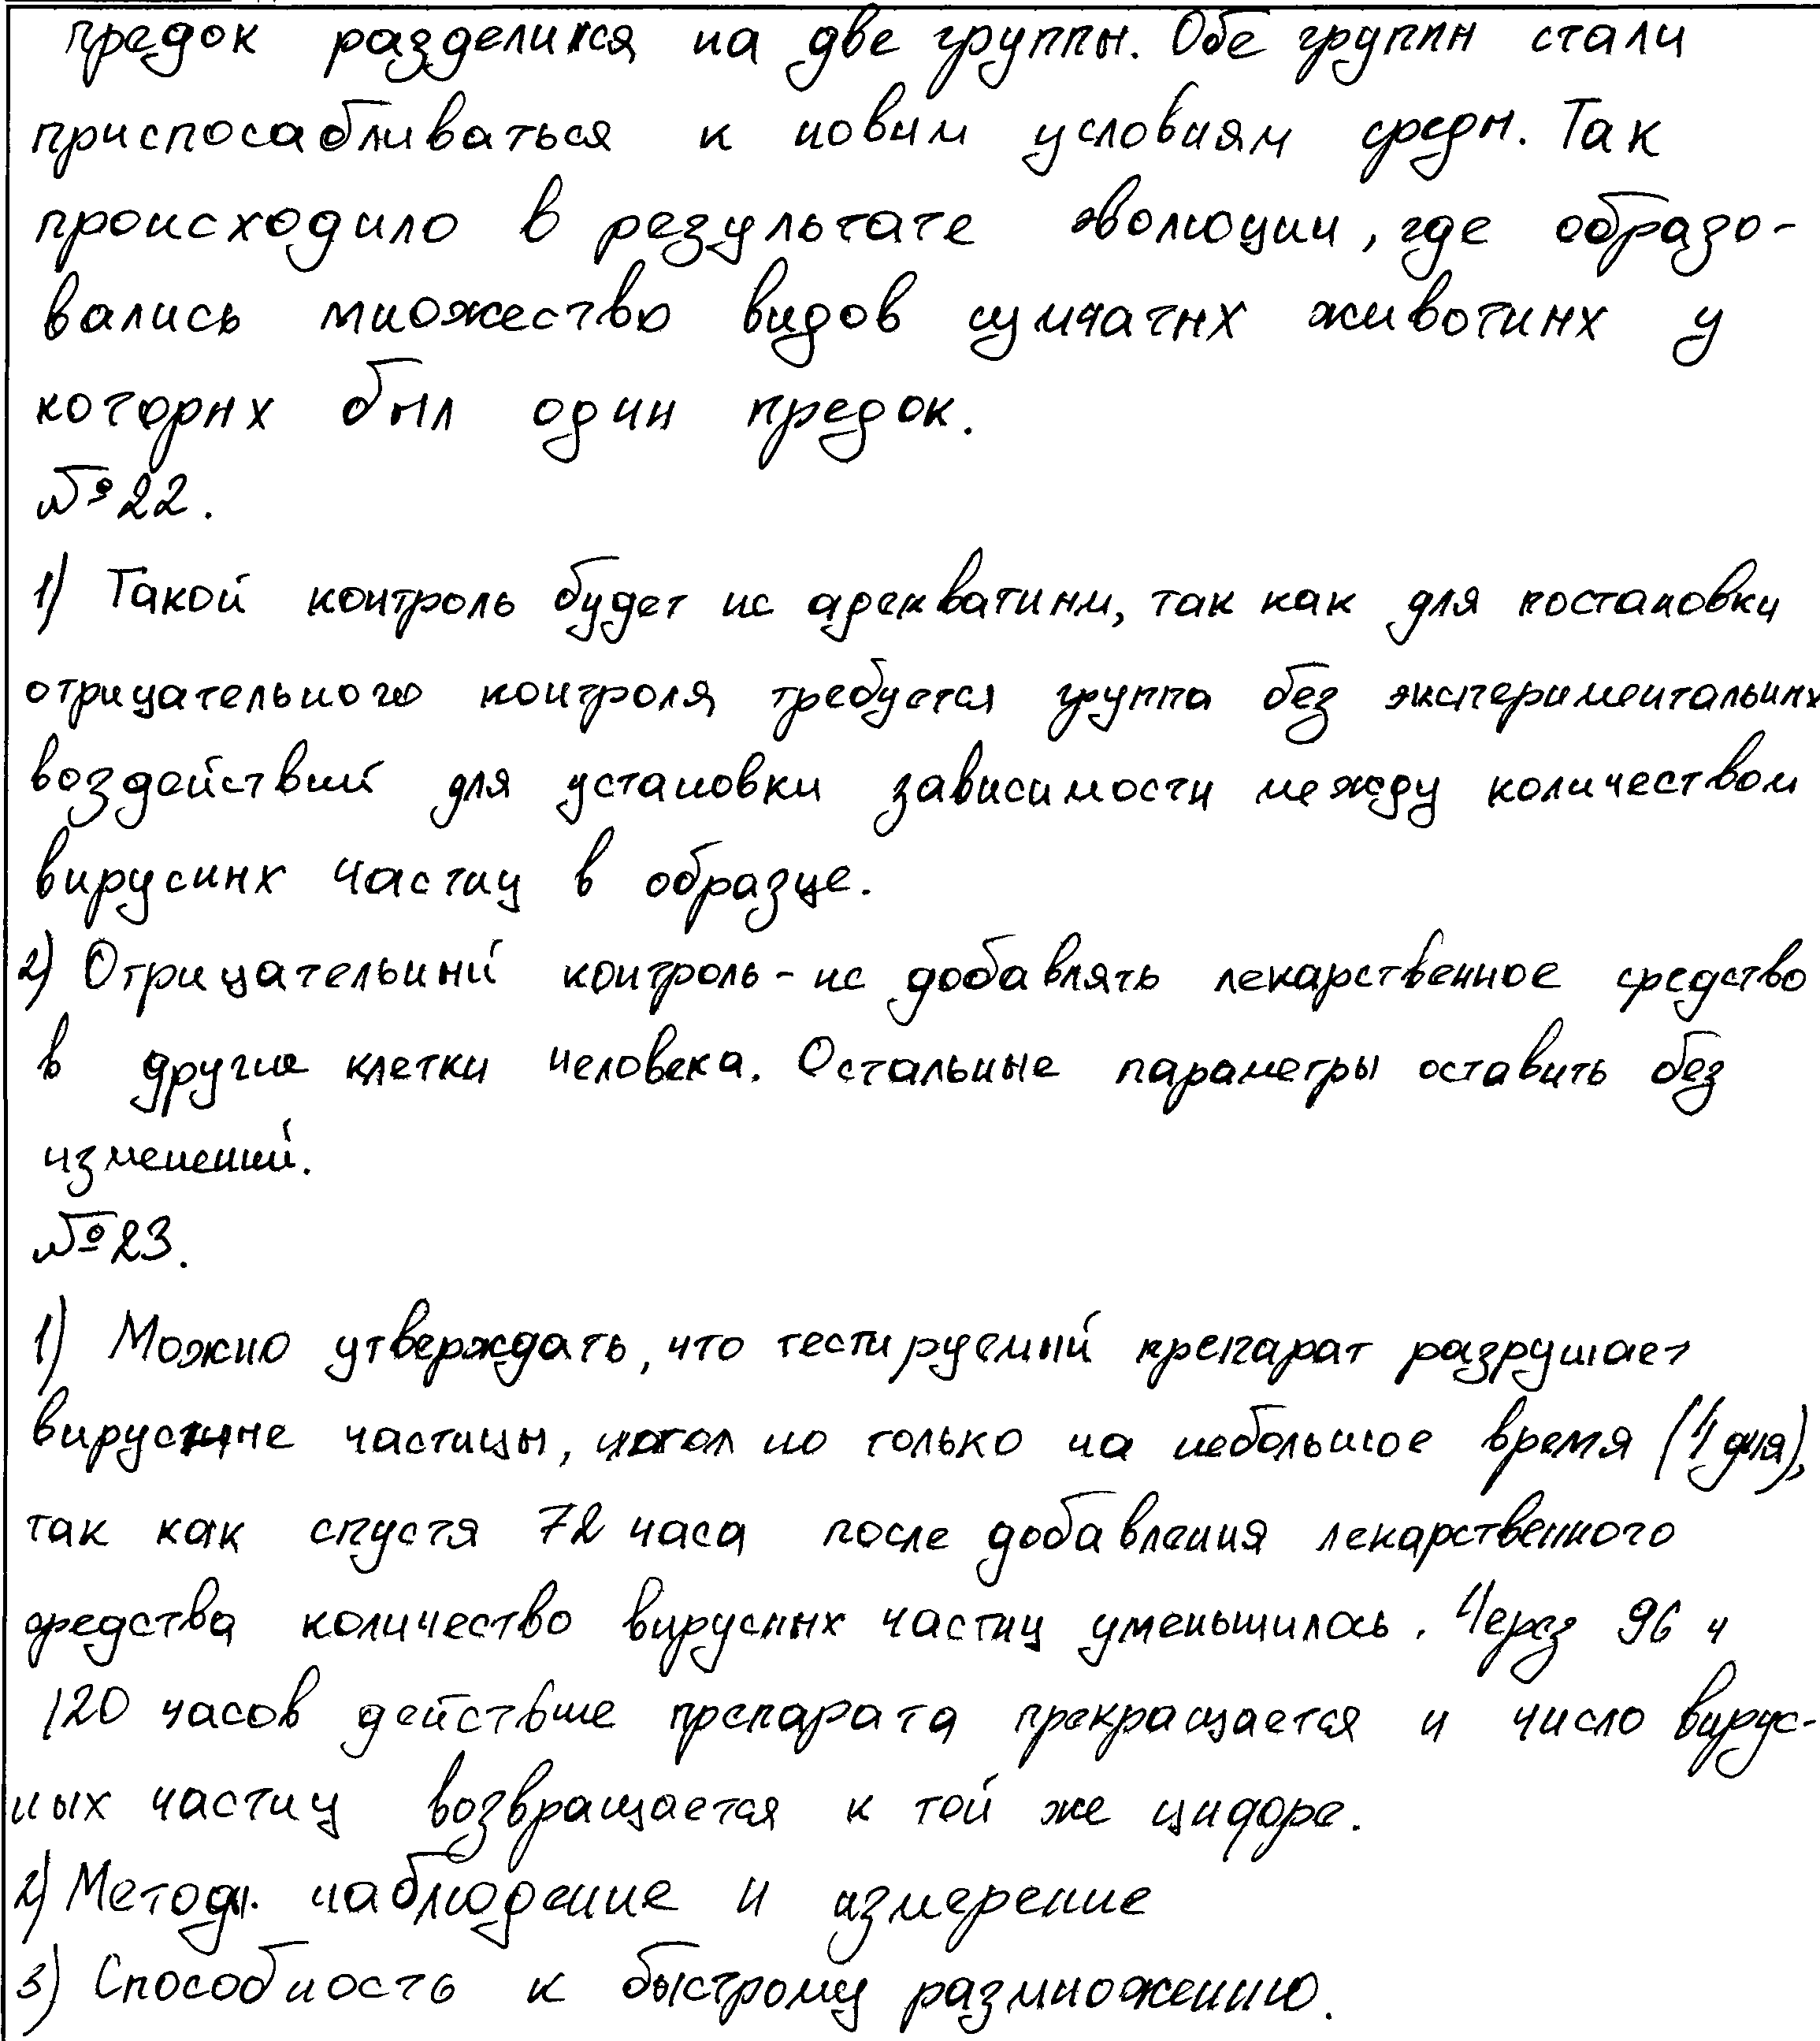 предок разделился на две группы. Обе группы стали
приспосабливаться к новым условиям среды. Так
происходило в результате эволюции, где образо-
вались множество видов сумчатых животных у
которых был один предок.
№22.
1) Такой контроль будет не адекватным, так как для постановки
отрицательного контроля требуется группа без экспериментальных
воздействий для установки зависимости между количеством
вирусных частиц в образце.
2) Отрицательный контроль - не добавлять лекарственное средство
в другие клетки человека. Остальные параметры оставить без
изменений.
№23.
1) Можно утверждать, что тестируемый препарат разрушает
вирусные частицы, но только на небольшое время (4 дня),
так как спустя 72 часа после добавления лекарственного
средства количество вирусных частиц уменьшилось. Через 96 и
120 часов действие препарата прекращается и число вирус-
ных частиц возвращается к той же цифре.
2) Методы. наблюдение и измерение
3) Способность к быстрому размножению.